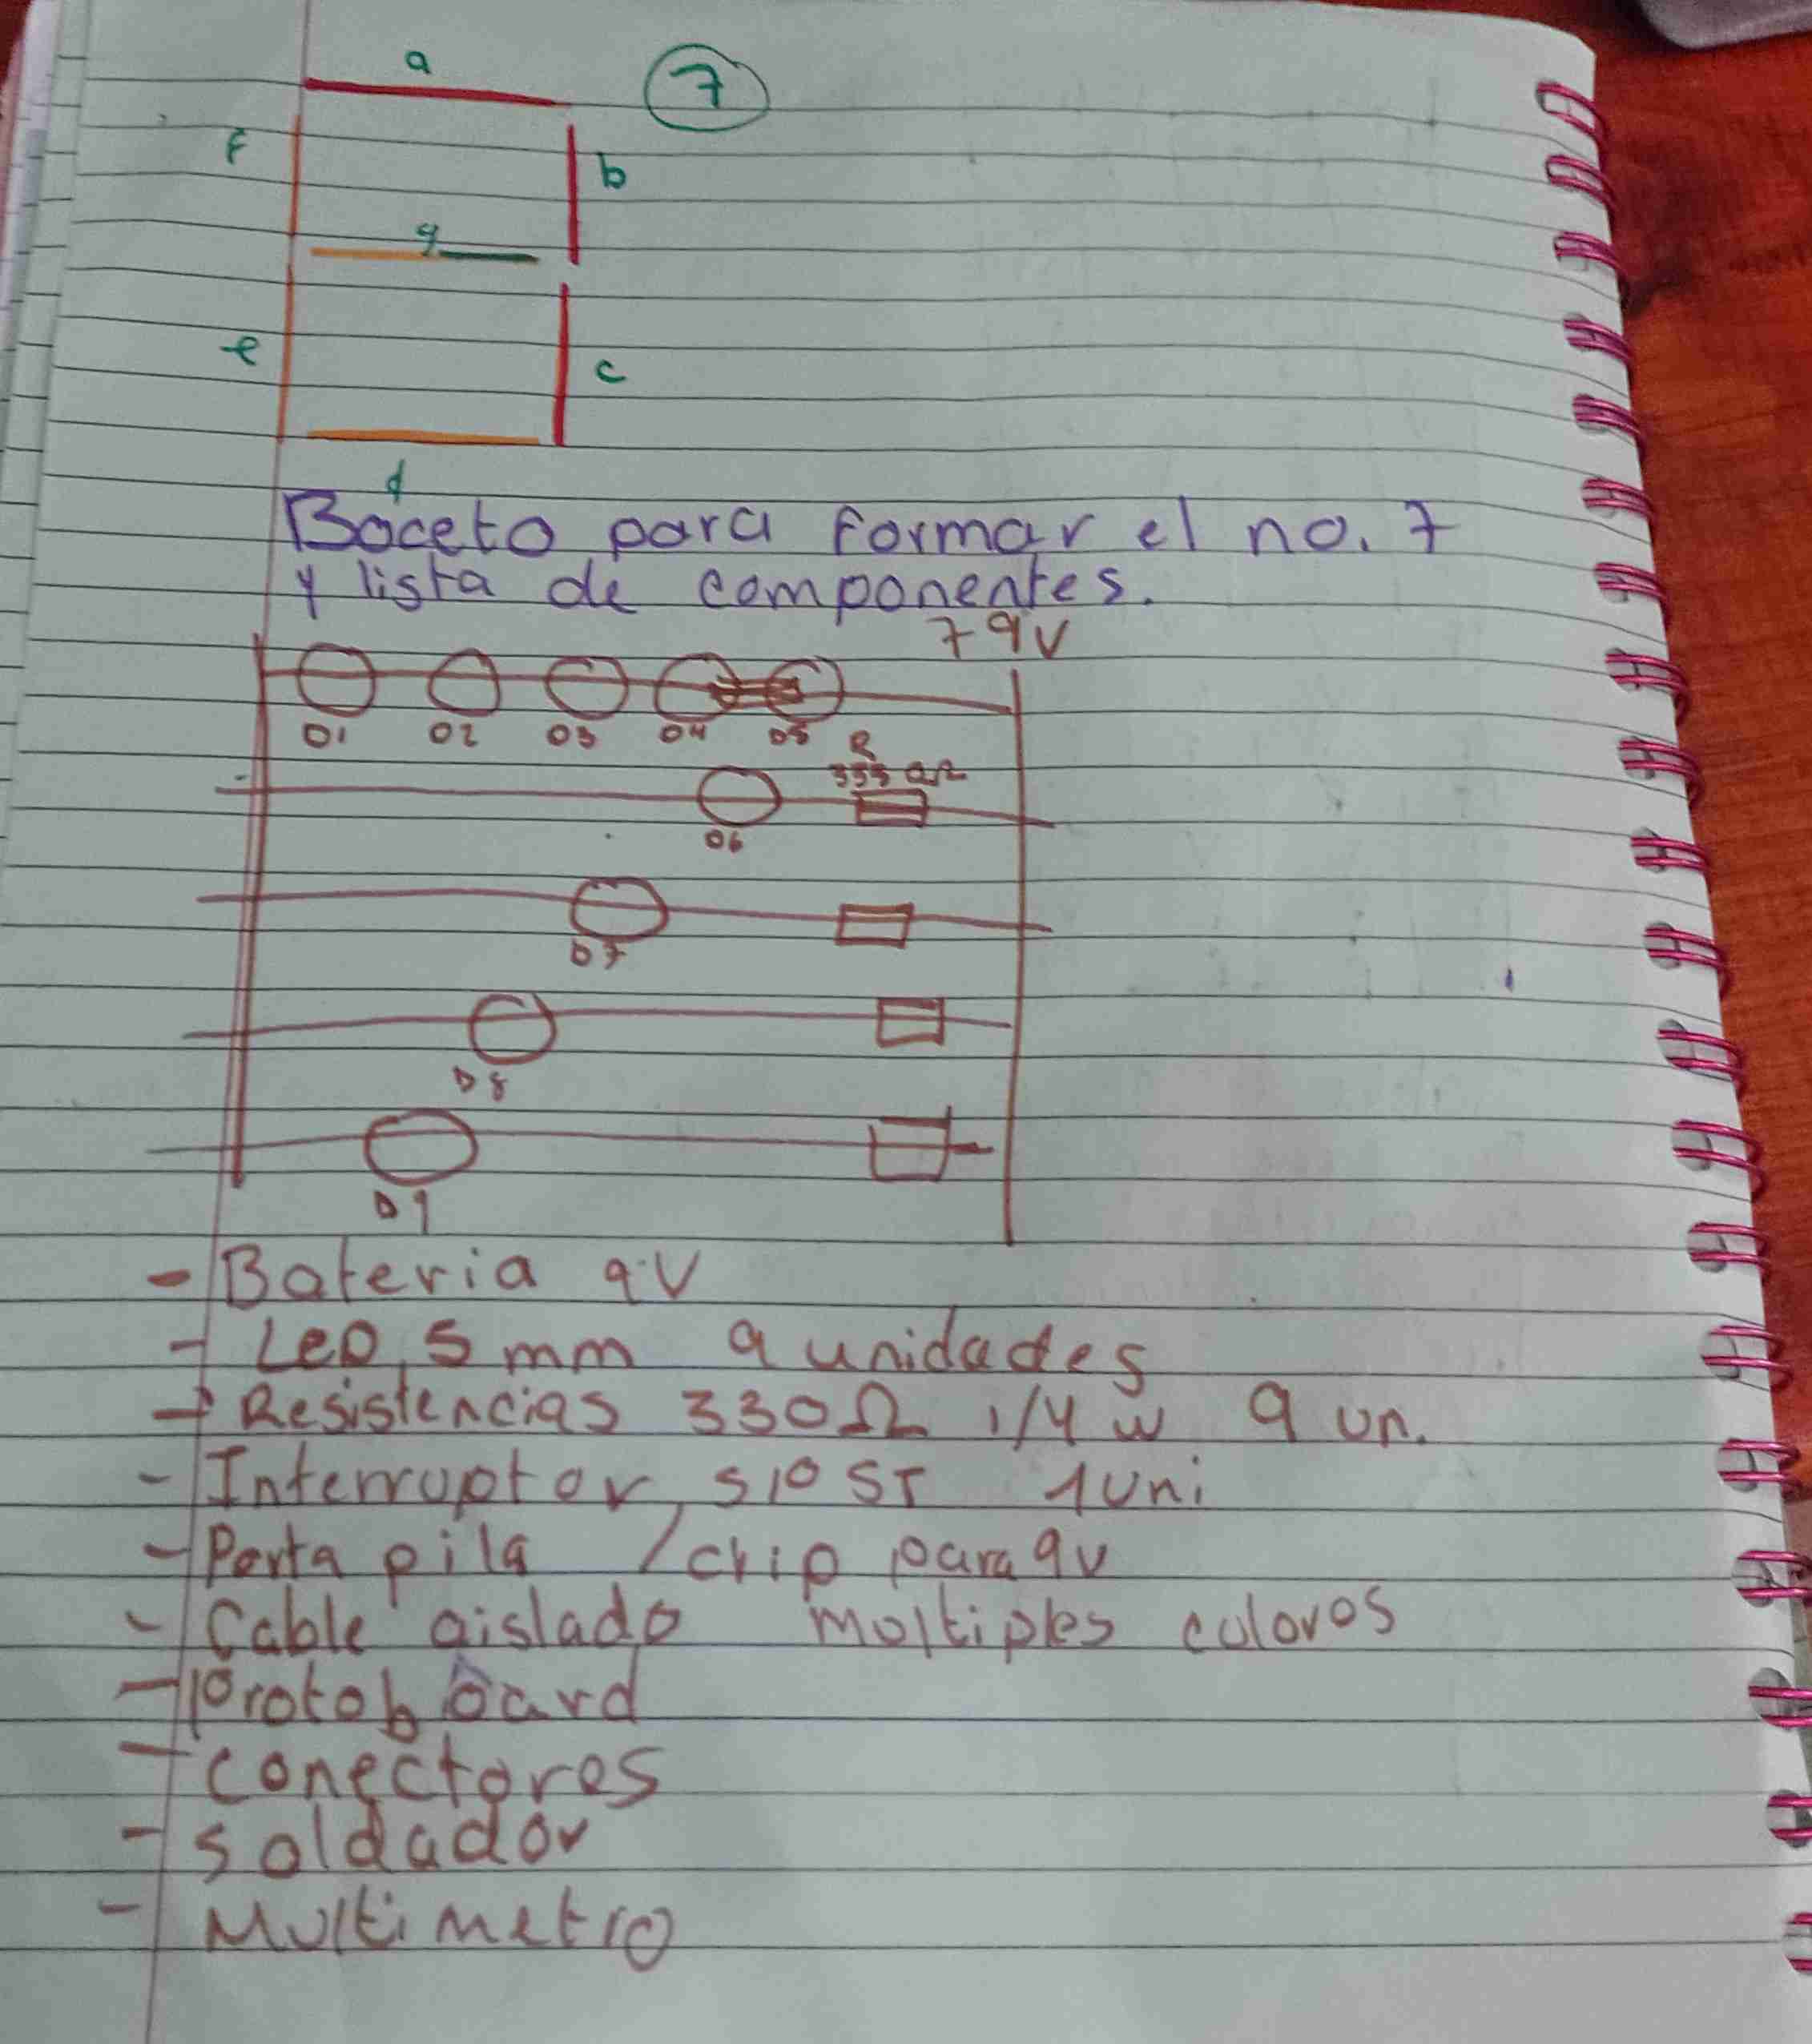 a
7
f
b
g
e
c
d
Boceto para formar el no. 7
y lista de componentes.
7 9V
D1 D2 D3 D4 D5 R
Ω
D6
D7
D8
D9
- Bateria 9V
- LeD, 5 mm 9 unidades
- Resistencias 330Ω 1/4 w 9 un.
- Interruptor, SPST 1uni
- Porta pila / clip para 9v
- Cable aislado moltiples colores
- Protoboard
- conectores
- soldador
- Multimetro